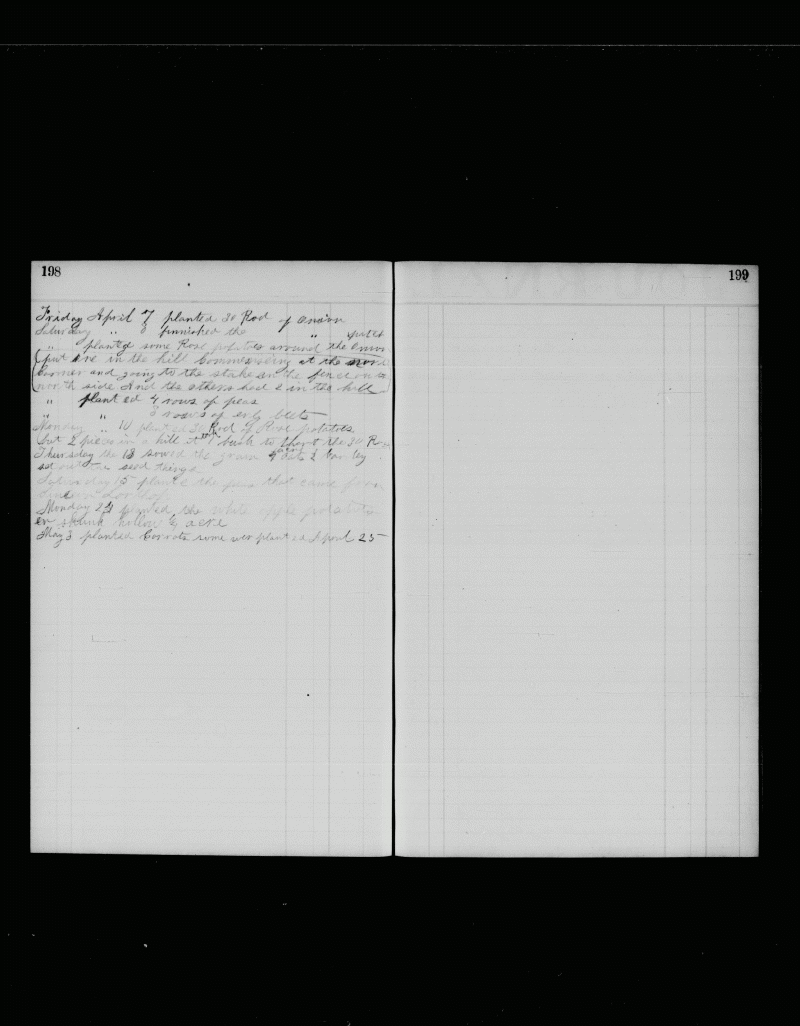 198
199
Friday April 7 planted 30 Rod of onion
Saturday " 8 finnished the " patch
" planted some Rose potatoes around the
(put one in the hill Commenseing at the
Corner and going to the stake in the fence on
north side And the others had 2 in the hill)
" planted 4 rows of peas
" " 3 rows of erly beets
Monday " 10 planted 30 Rod of Rose potatoes
Put 2 pieces in a hill it bush to plant the 30 Rod
Thursday the 13 sowed the grain
set out the seed things
Saturday 15 planted the peas that came from
Monday planted the white apple potatoes
en skunk hollow acre
May 3 planted Carrots some wer planted April 25